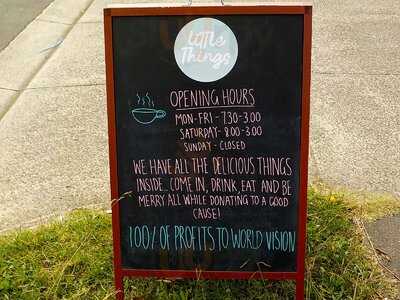 Little
Things
OPENING HOURS
MON-FRI - 7.30-3.00
SATURDAY - 8.00-3.00
SUNDAY - CLOSED
WE HAVE ALL THE DELICIOUS THINGS
INSIDE.. COME IN, DRINK, EAT AND BE
MERRY ALL WHILE DONATING TO A GOOD
CAUSE!
100% OF PROFITS TO WORLD VISION